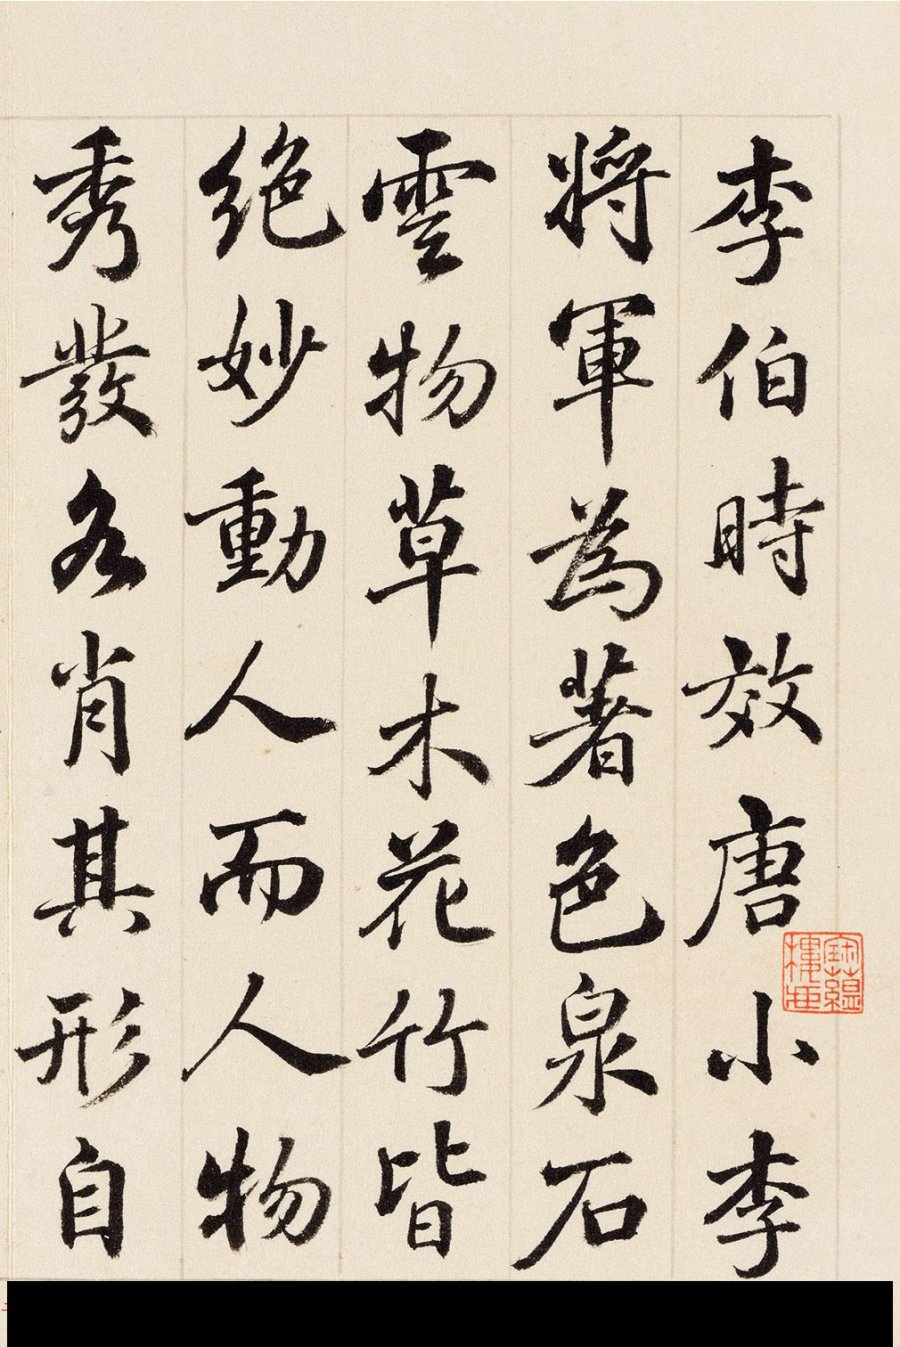 李伯時效唐小李
將軍為著色泉石
雲物草木花竹皆
絕妙動人而人物
秀發各肖其形自